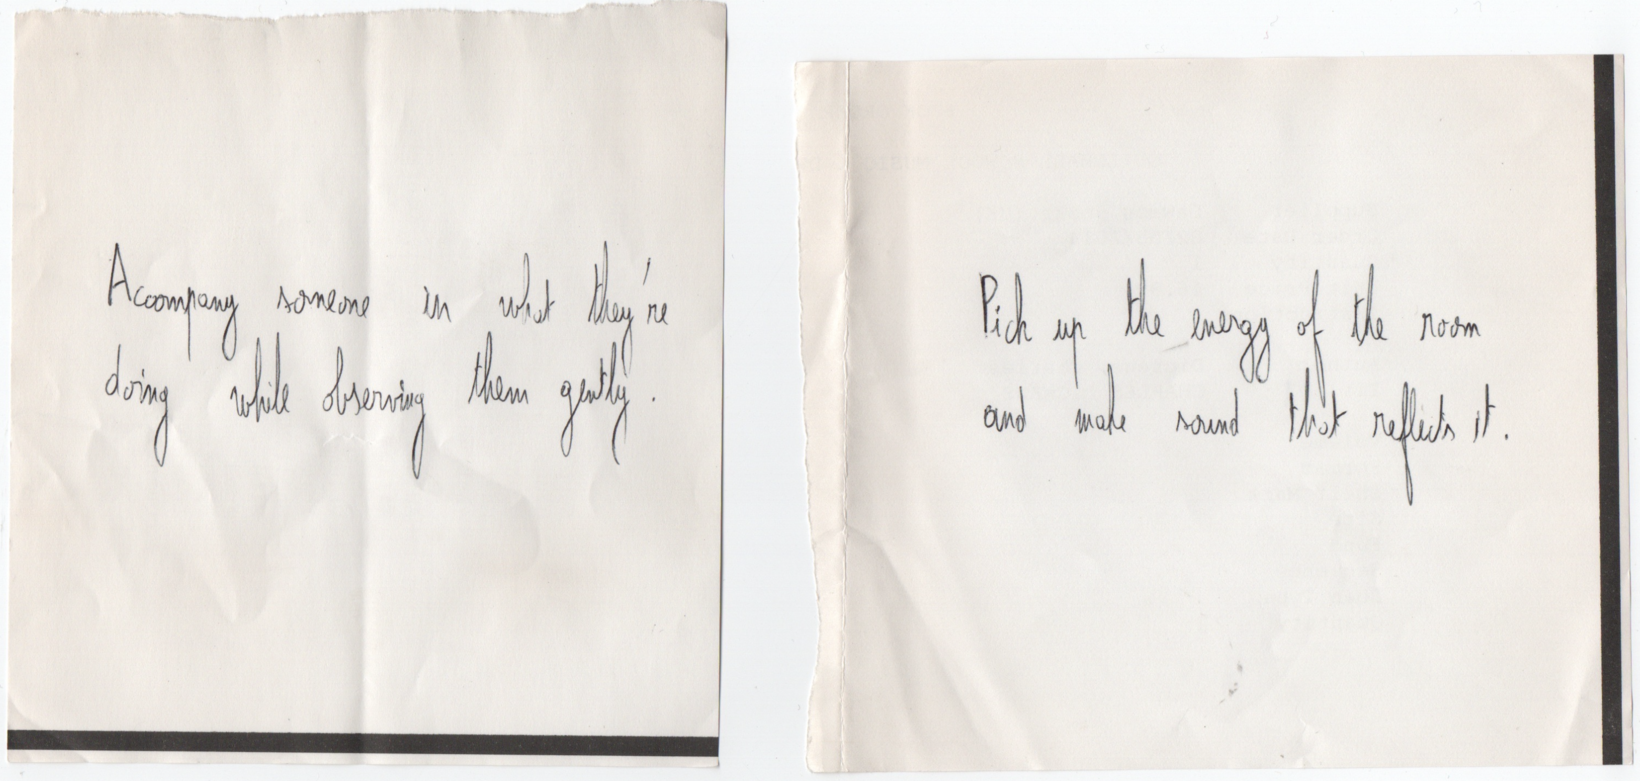 Accompany someone in what they're
doing while observing them gently.
Pick up the energy of the room
and make sound that reflects it.